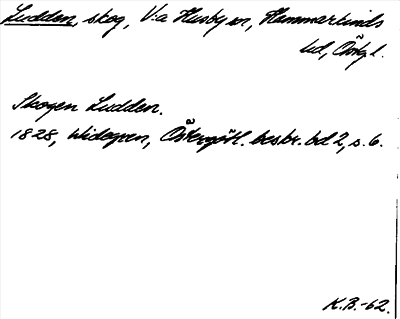 Ludden, skog, V:a Husby sn, Hammarkinds
hd, Östgl.
Skogen Ludden.
1828, Widegren, Östergötl. beskr. bd 2, s. 6.
K.B.-62.